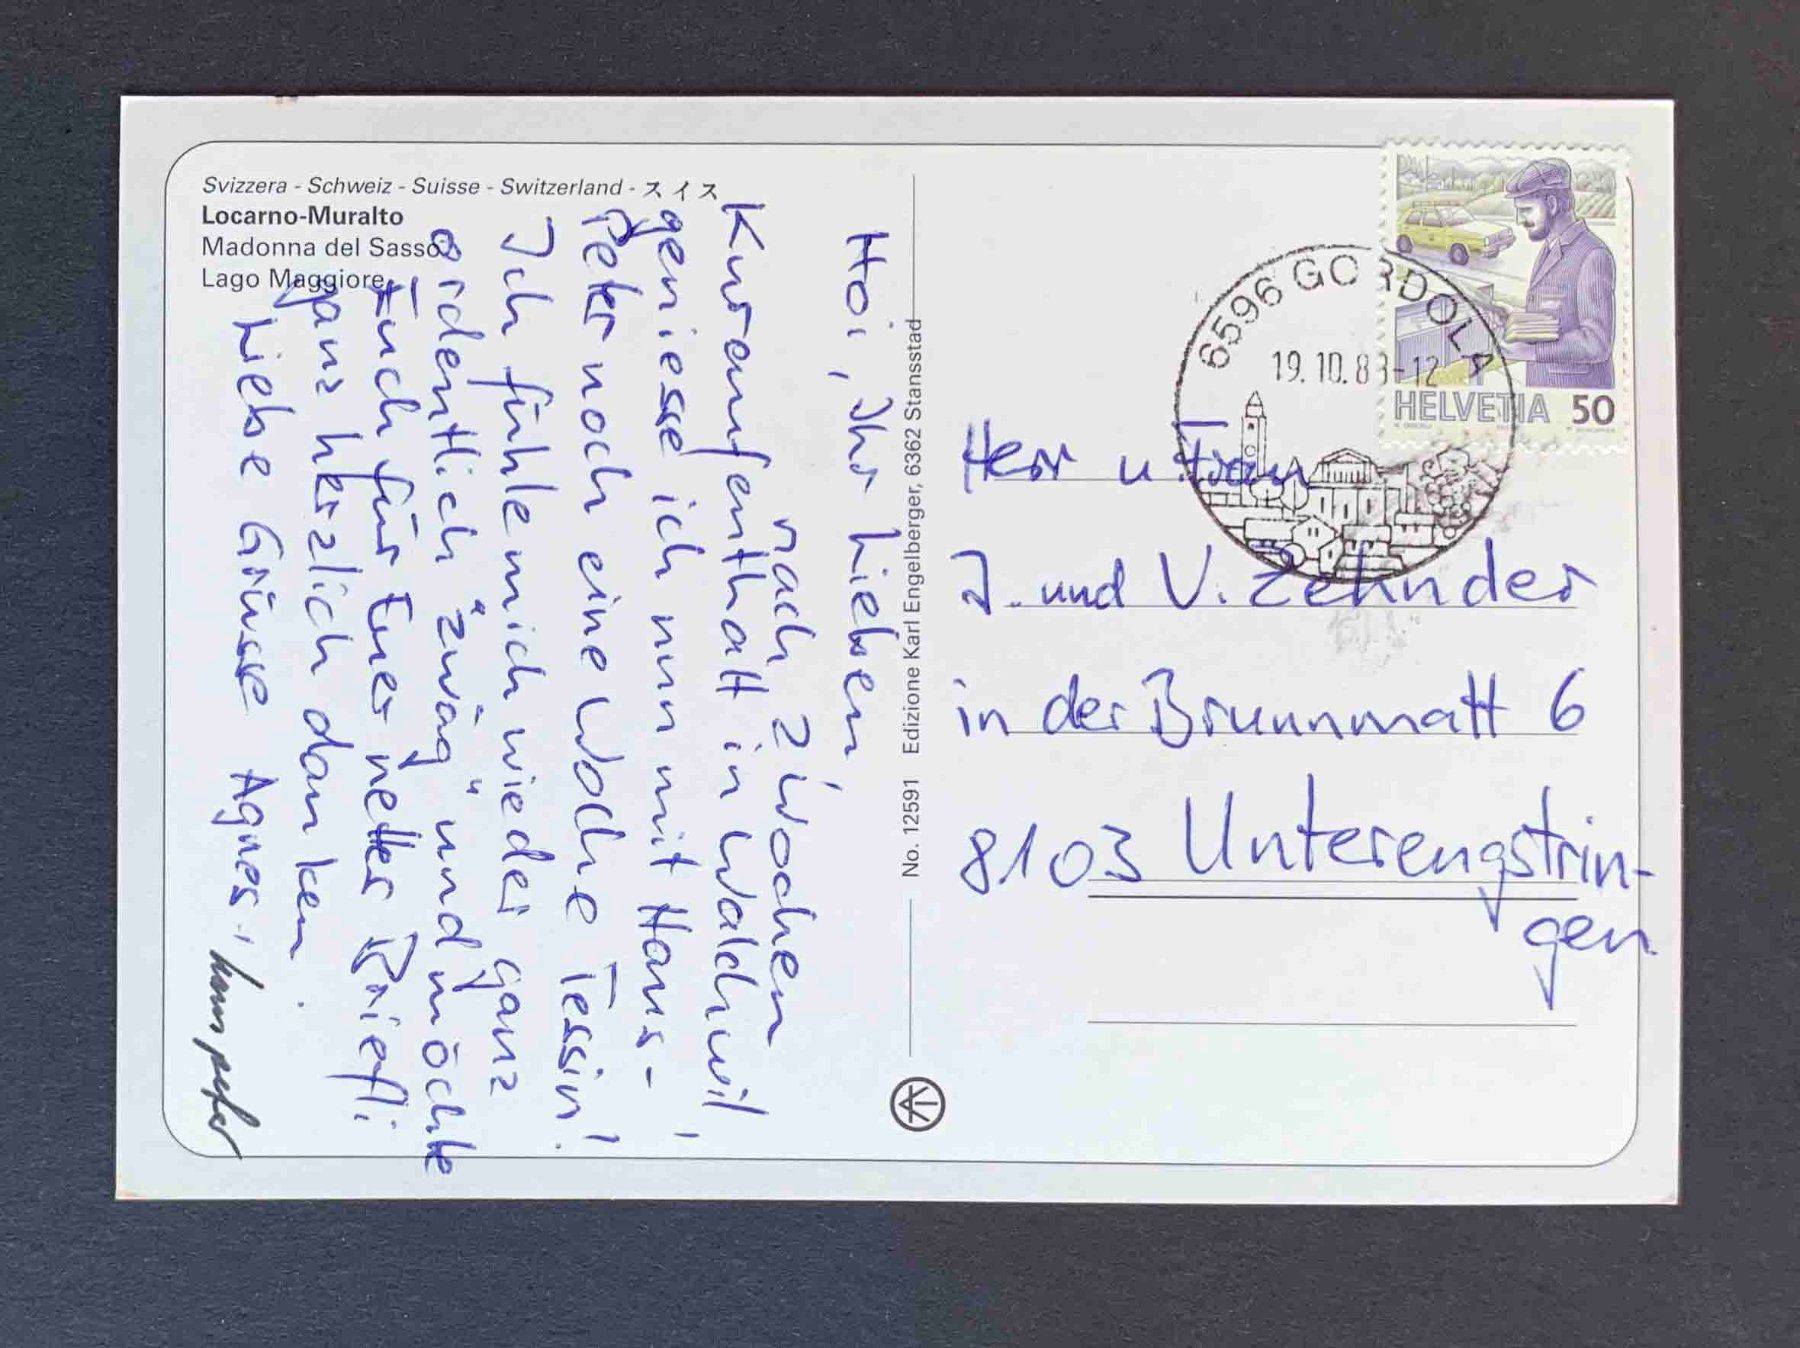 Svizzera - Schweiz - Suisse - Switzerland - スイス
Locarno-Muralto
Madonna del Sasso
Lago Maggiore
Hoi, Ihr Lieben,
nach 2 Wochen
Kuraufenthalt in Walchwil,
geniesse ich nun mit Hans-
Peter noch eine Woche Tessin!
Ich fühle mich wieder ganz
ordentlich "zwäg" und möchte
Euch für Euer nettes Briefli
ganz herzlich danken.
Liebe Grüsse Agnes,
Hanspeter
No. 12591 Edizione Karl Engelberger, 6362 Stansstad
6596 GORDOLA
19.10.88-12
HELVETIA 50
Herr u. Frau
J. und V. Zehnder
in der Brunnmatt 6
8103 Unterengstrin-
gen